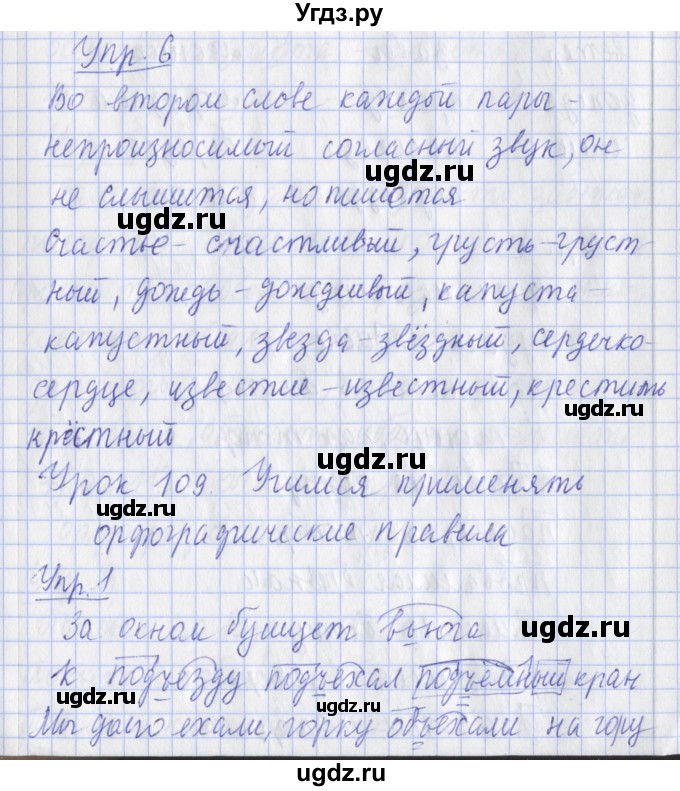 Угдз.ру
Упр. 6
Во втором слове каждой пары -
непроизносимый согласный звук, он
не слышится, но пишется
ugdz.ru ugdz.ru
счастье - счастливый, грусть - груст-
ный, дождь - дождливый, капуста -
ugdz.ru
капустный, звезда - звёздный, сердечко-
сердце, известие - известный, крестить
ugdz.ru
крёстный
ugdz.ru
Урок 109. Учимся применять
ugdz.ru
орфографические правила
Упр. 1
За окном бушует вьюга
ugdz.ru
к подъезду подъехал подъёмный кран
Мы долго ехали, горку объехали на гору
ugdz.ru ugdz.ru